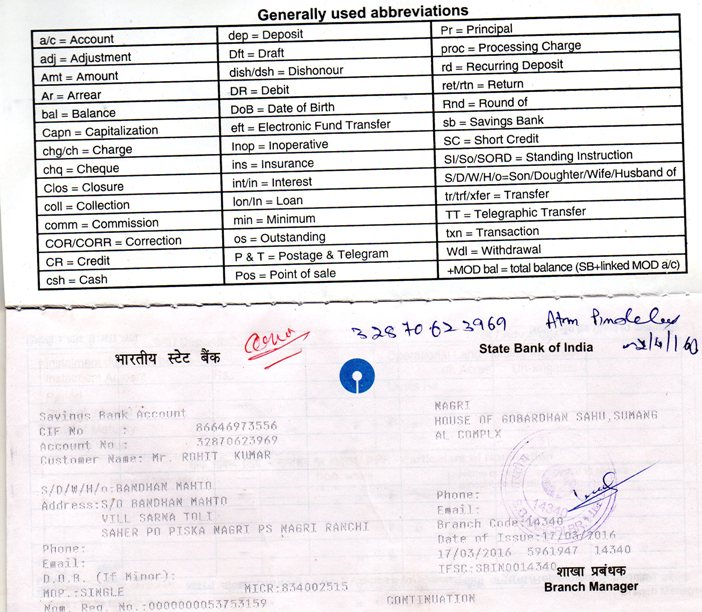 Generally used abbreviations
a/c = Account
adj = Adjustment
Amt = Amount
Ar = Arrear
bal = Balance
Capn = Capitalization
chg/ch = Charge
chq = Cheque
Clos = Closure
coll = Collection
comm = Commission
COR/CORR = Correction
CR = Credit
csh = Cash
dep = Deposit
Dft = Draft
dish/dsh = Dishonour
DR = Debit
DoB = Date of Birth
eft = Electronic Fund Transfer
Inop = Inoperative
ins = Insurance
int/in = Interest
lon/In = Loan
min = Minimum
os = Outstanding
P & T = Postage & Telegram
Pos = Point of sale
Pr = Principal
proc = Processing Charge
rd = Recurring Deposit
ret/rtn = Return
Rnd = Round of
sb = Savings Bank
SC = Short Credit
SI/So/SORD = Standing Instruction
S/D/W/H/o=Son/Doughter/Wife/Husband of
tr/trf/xfer = Transfer
TT = Telegraphic Transfer
txn = Transaction
Wdl = Withdrawal
+MOD bal = total balance (SB+linked MOD a/c)
32870623969 Atm
भारतीय स्टेट बैंक
State Bank of India
Savings Bank Account
CIF No : 86646973556
Account No.: 32870623969
Customer Name: Mr. ROHIT KUMAR
S/D/W/H/o:BANDHAN MAHTO
Address:S/O BANDHAN MAHTO
VILL SARNA TOLI
SAHER PO PISKA NAGRI PS NAGRI RANCHI
Phone:
Email:
D.O.B. (If Minor):
MOP.:SINGLE MICR:834002515
Nom. Reg. No.:0000000053753159
NAGRI
HOUSE OF GOBARDHAN SAHU,SUMANG
AL COMPLX
Phone:
Email:
Branch Code:14340
Date of Issue:17/03/2016
17/03/2016 5961947 14340
IFSC:SBIN0014340
14340
शाखा प्रबंधक
Branch Manager
CONTINUATION